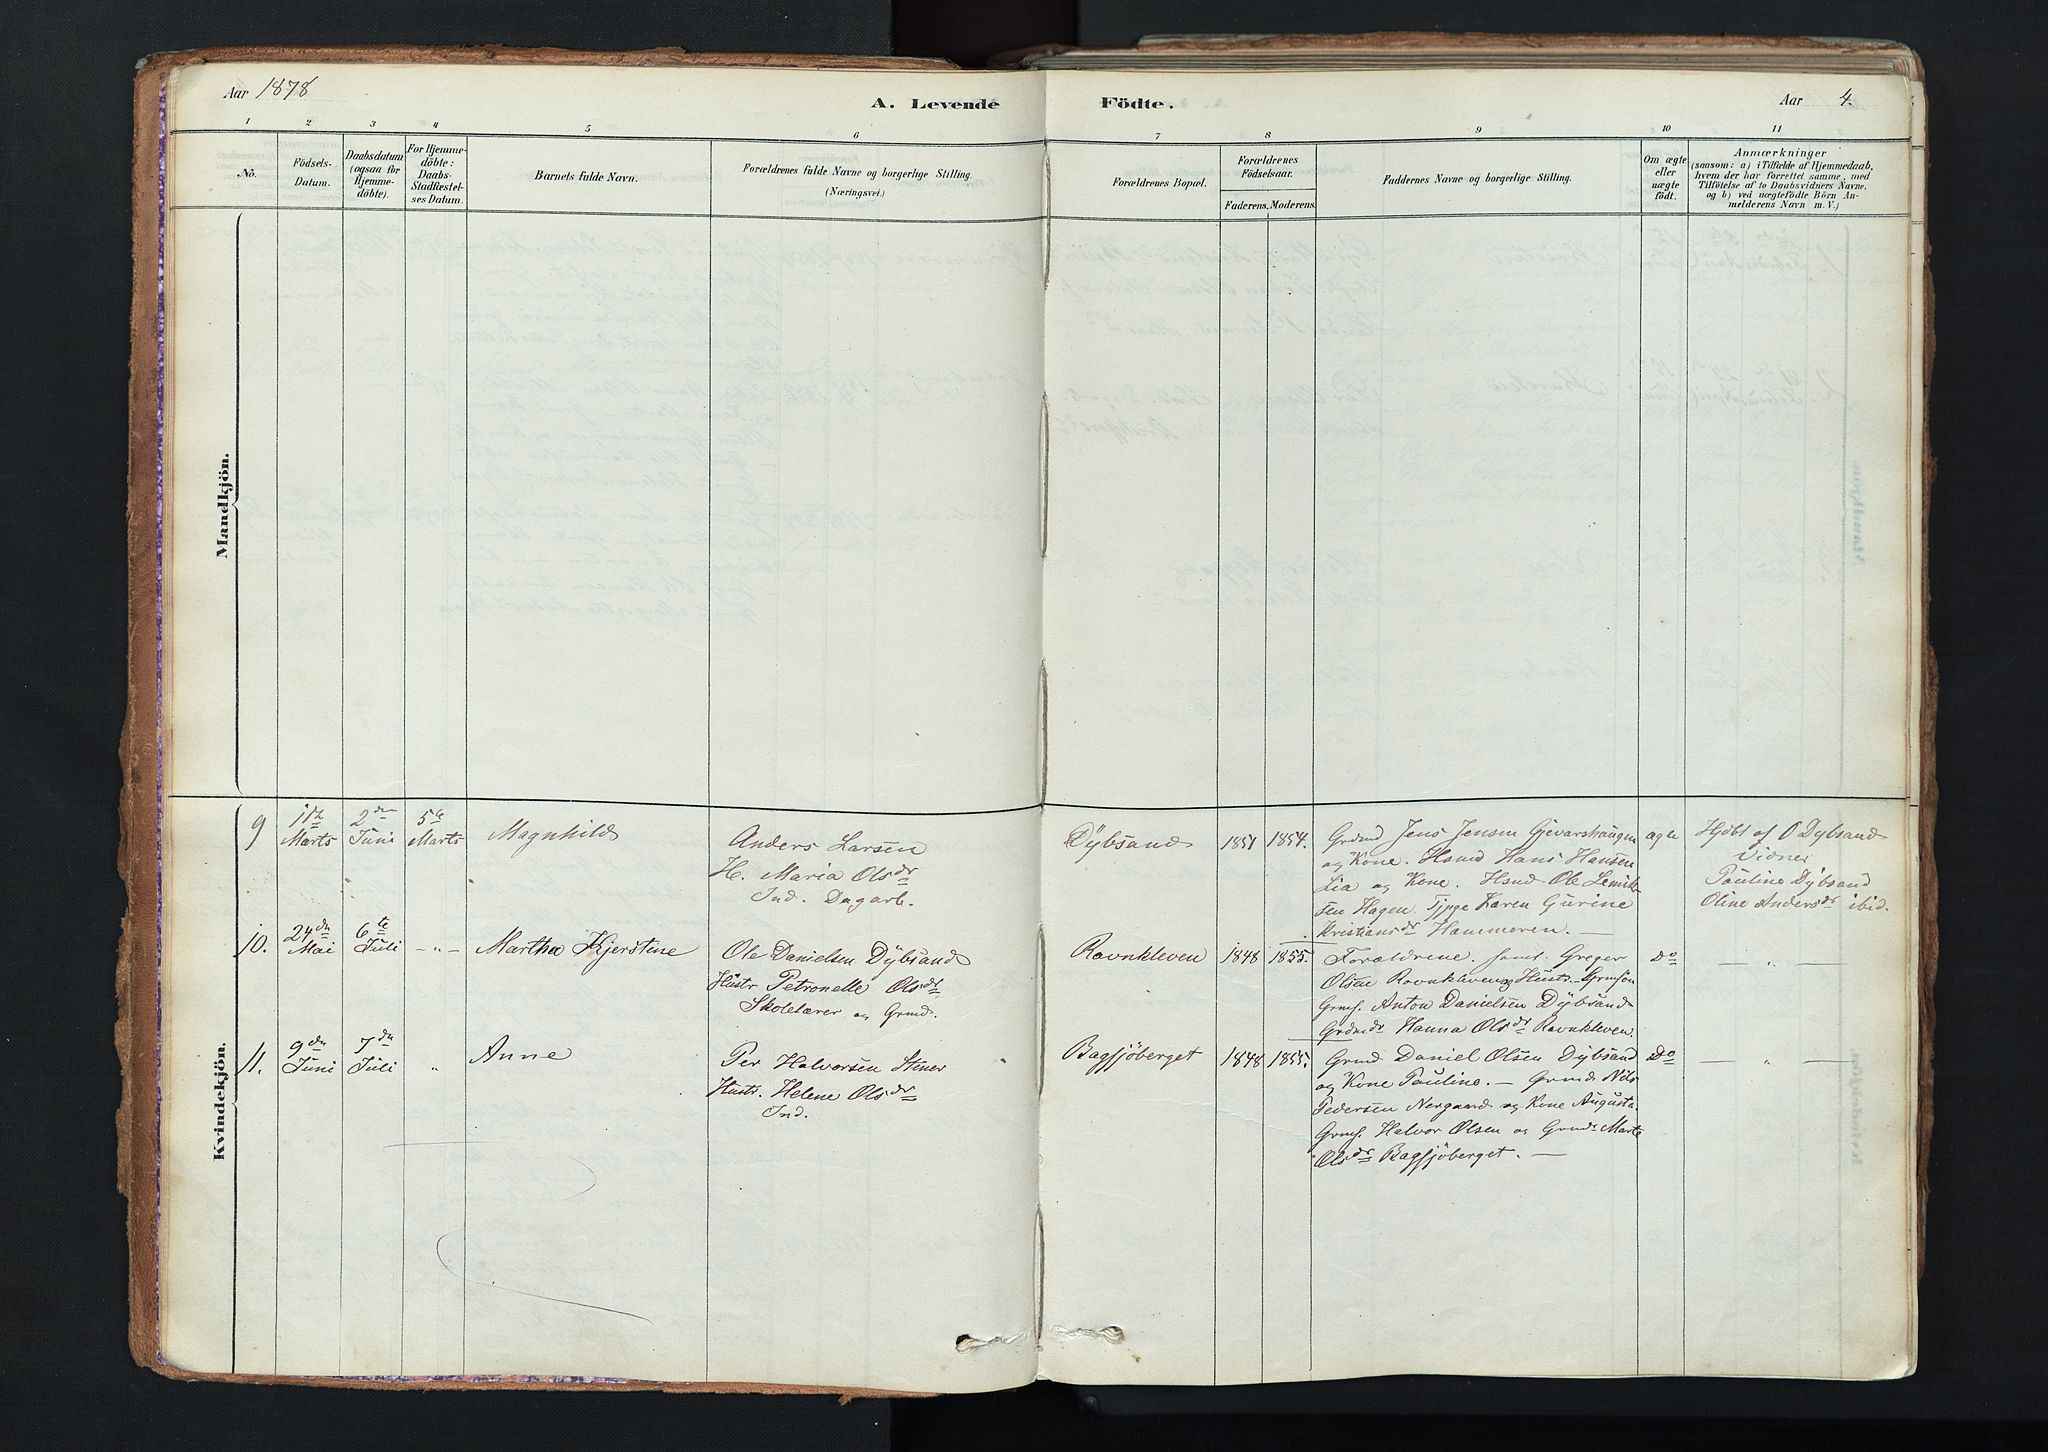 Aar 1878
A. Levende Födte.
Aar 4.
1 2 3 4 5 6 7 8 9 10 11
No.
Födsels-
Datum.
Daabsdatum
(ogsaa for
Hjemme-
döbte).
For Hjemme-
döbte:
Daabs-
Stadfæstel-
ses Datum.
Barnets fulde Navn.
Forældrenes fulde Navne og borgerlige Stilling.
(Næringsvei.)
Forældrenes Bopæl.
Forældrenes
Födselsaar.
Faderens. Moderens.
Faddernes Navne og borgerlige Stilling.
Om ægte
eller
uægte
födt.
Anmærkninger
(saasom: a) i Tilfælde af Hjemmedaab,
hvem der har forrettet samme, med
Tilföielse af to Daabsvidners Navne.
og b) ved uægtefödte Börn An-
melderens Navn m. V.)
Mandkjön.
Kvindekjön.
9
Marts
2den
Juni
5te
Marts
Magnhild
Anders Larsen
H. Maria Olsdr
Ind. Dagarb.
Dÿbsand
1851
1854.
Grdmd Jens Jensen Gjevarshaugen
og Kone. Hsmd Hans Hansen
Lia og Kone. Hsmd Ole Lemik-
sen Hagen. Tjpge Karen Gurine
Kristiansdr Hammeren. —
ægte
Hjdbt af O Dybsand
Vidner
Pauline Dÿbsand
Oline Andersdr ibid.
10.
24dn
Mai
6te
Juli
-"-
Martha Kjerstine
Ole Danielsen Dÿbsand
Hustr Petronelle Olsdr
Skolelærer og Grmd.
Ravnkleven
1848
1855.
Forældrene. samt. Greger
Olsen Ravnkleven og Hustr. Grmfon
Grmf. Anton Danielsen Dÿbsand
Grdmdr Hanna Olsdr Ravnkleven.
Do
— " —
11.
9dn
Juni
7dn
Juli
"
Anne
Per Halvorsen Stener
Hustr. Helene Olsdr
Ind.
Bagsjöberget
1848
1855.
Grmd. Daniel Olsen Dÿbsand
og Kone Pauline. — Grmd. Nils
Pedersen Nergaard og Kone Augusta.
Grmf. Halvor Olsen og Grmdr Marte
Olsdr Bagsjöberget. —
Do
— " —